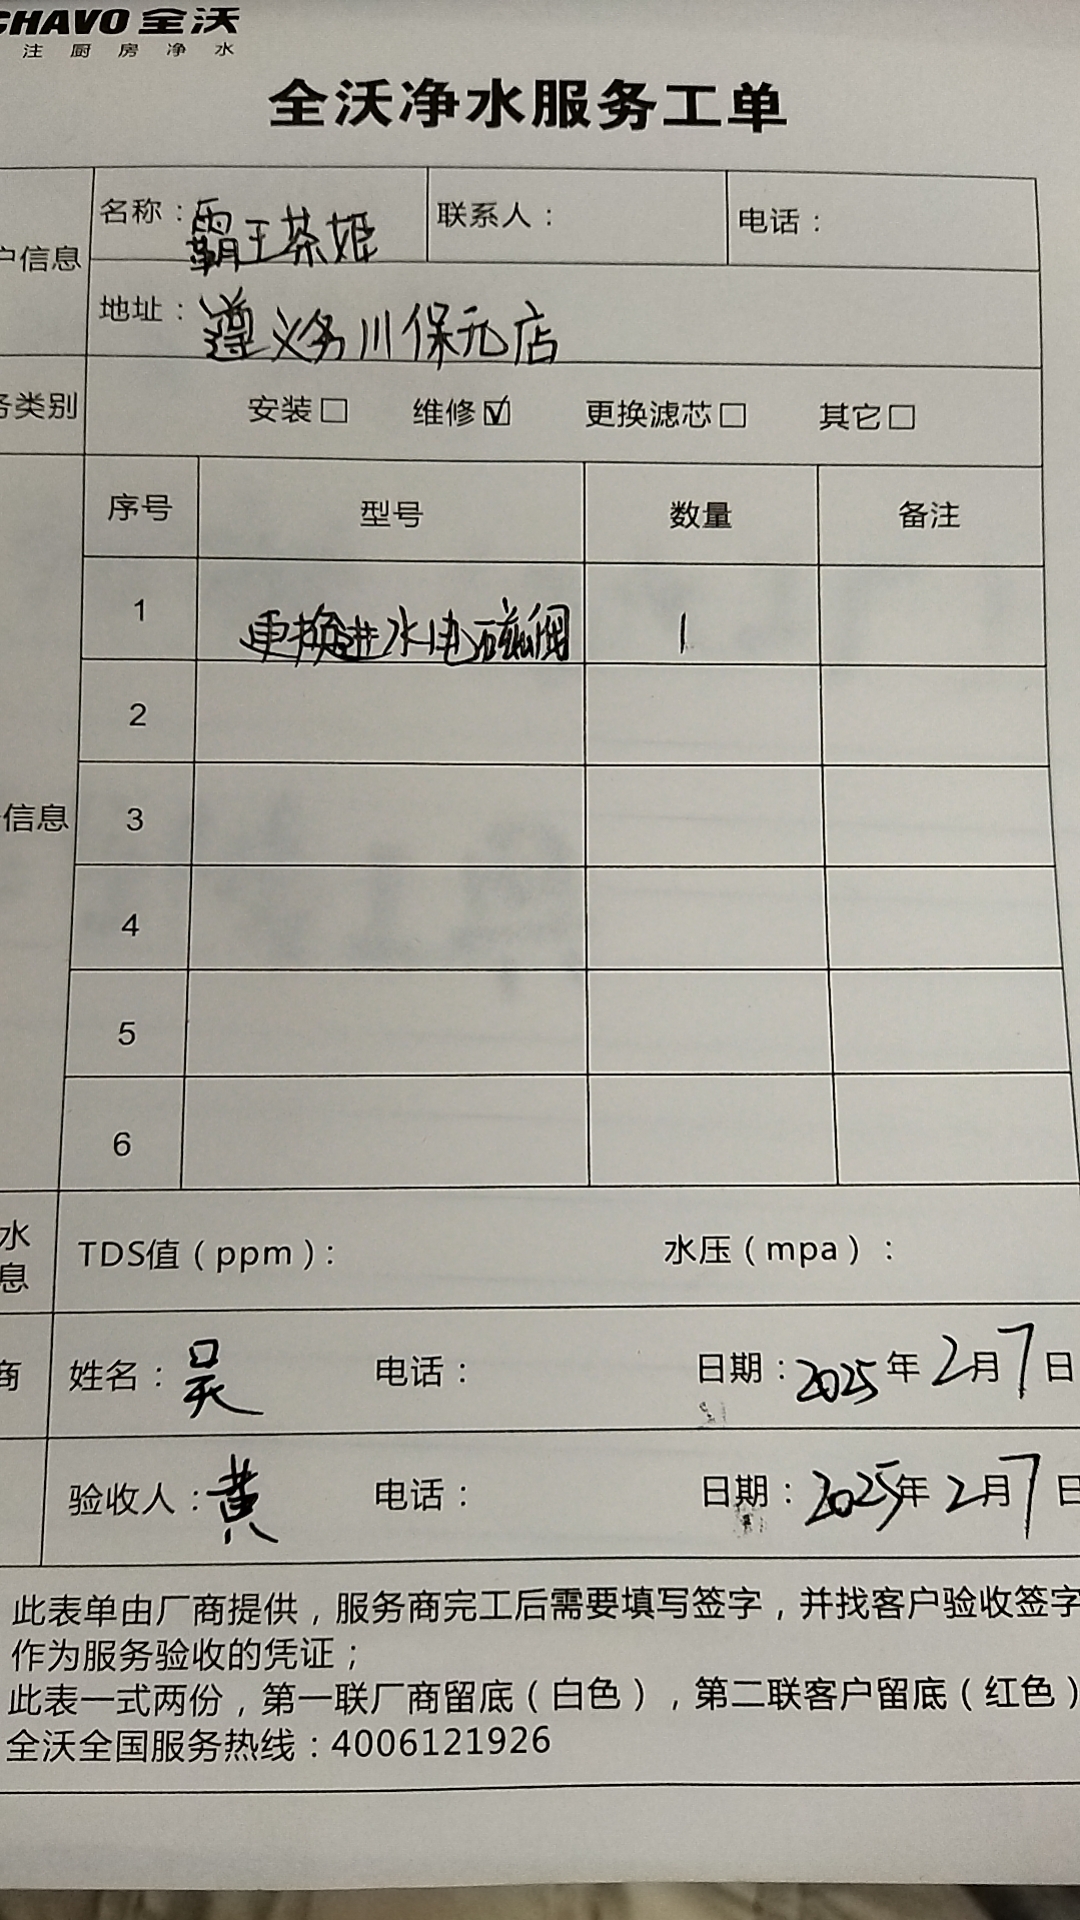 CHAVO 全沃
注 厨 房 净 水
全沃净水服务工单
户信息
名称：霸王茶姬 联系人： 电话：
地址：遵义务川保元店
务类别 安装□ 维修☑ 更换滤芯□ 其它□
序号 型号 数量 备注
1 更换进水电磁阀 1
2
信息 3
4
5
6
水息 TDS值（ppm）： 水压（mpa）：
商 姓名：吴 电话： 日期：2025年2月7日
验收人：黄 电话： 日期：2025年2月7日
此表单由厂商提供，服务商完工后需要填写签字，并找客户验收签字
作为服务验收的凭证；
此表一式两份，第一联厂商留底（白色），第二联客户留底（红色）
全沃全国服务热线：4006121926